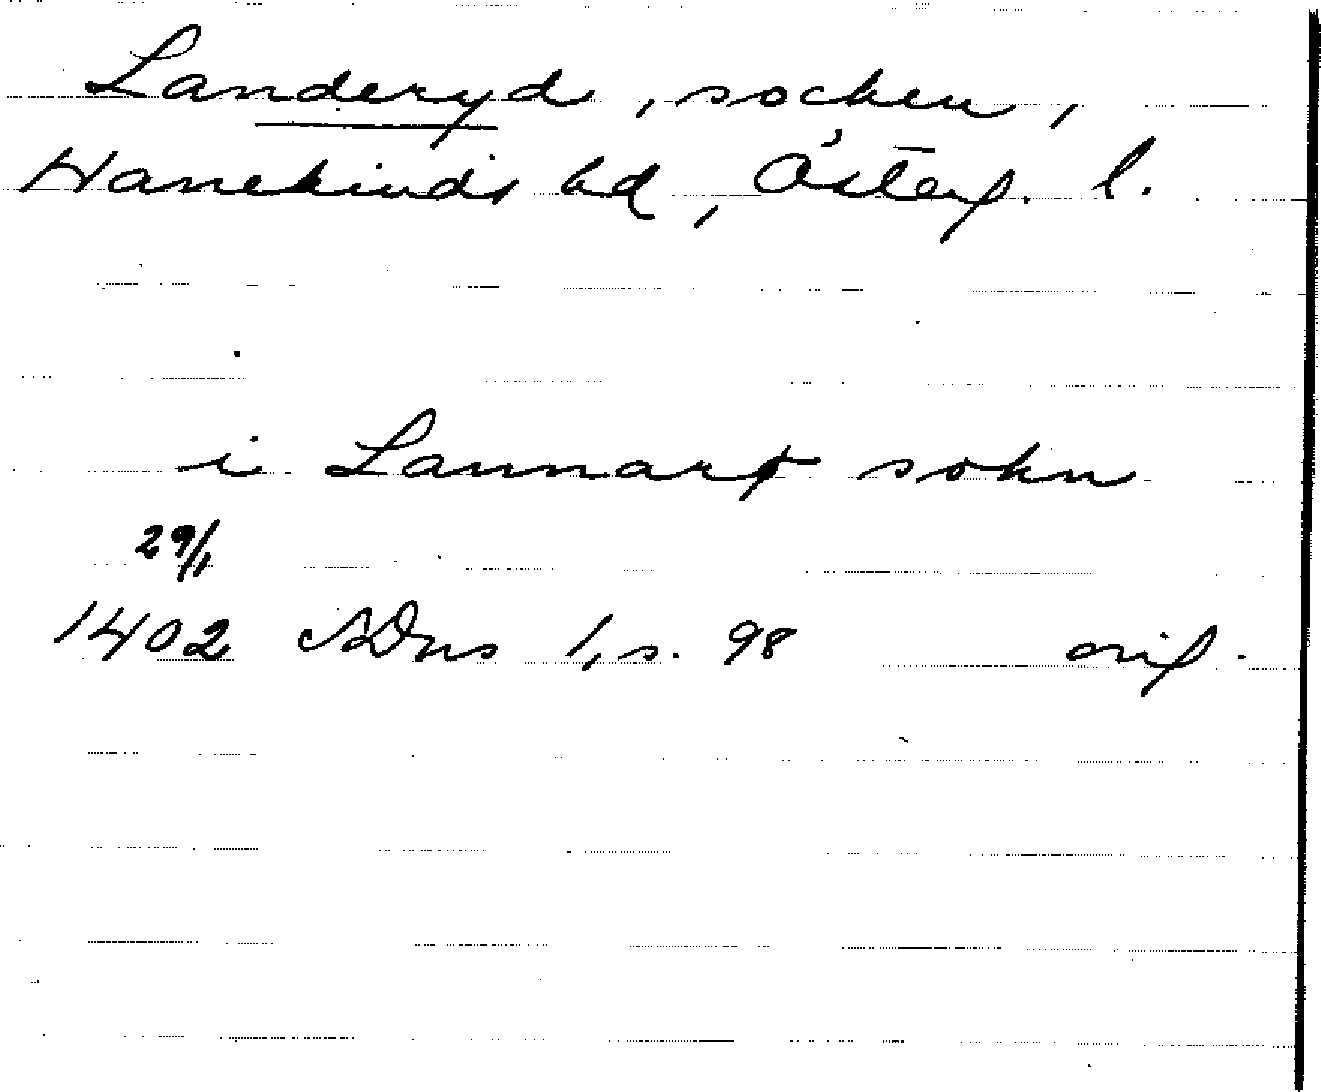 Landeryd, socken,
Hanekinds hd, Österg. l.
i Lannarþ sokn
29/1
1402 SDns 1, s. 98 orig.